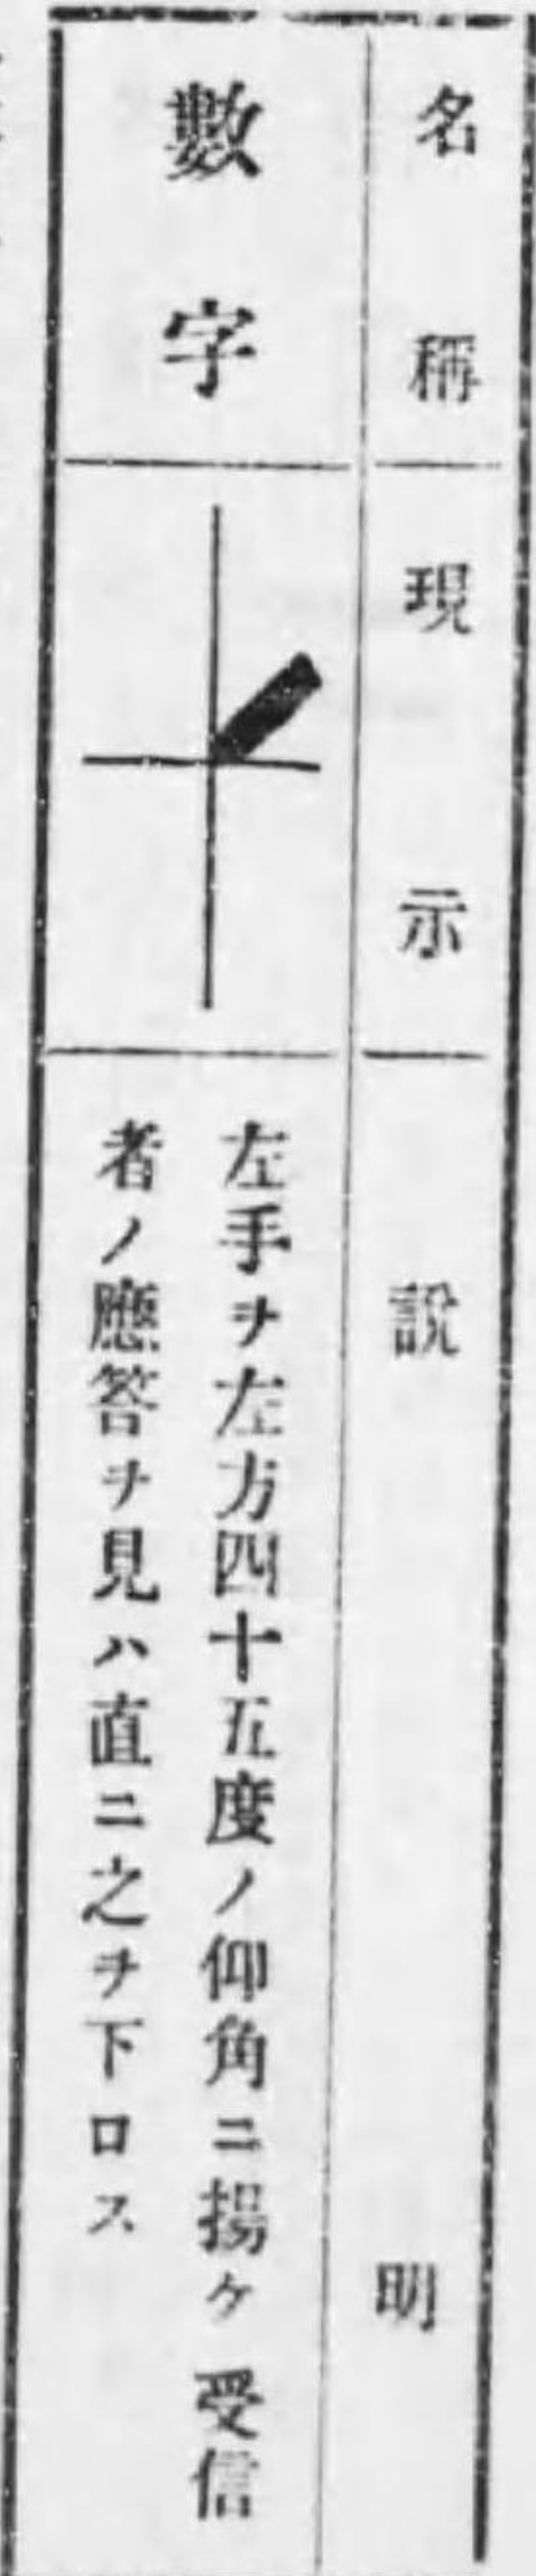 名稱
現示
說明
數字
左手ヲ左方四十五度ノ仰角ニ揚ケ受信
者ノ應答ヲ見ハ直ニ之ヲ下ロス